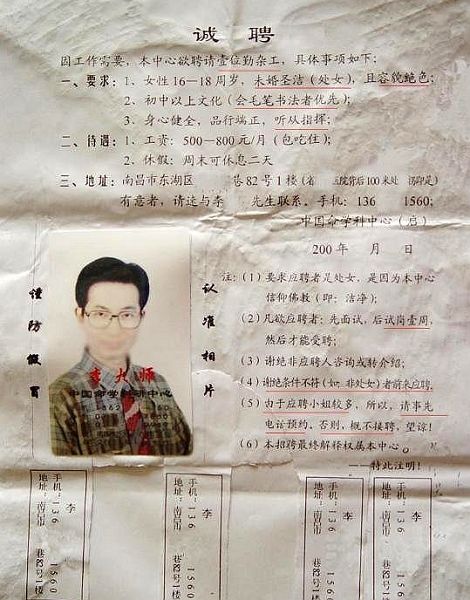 诚聘
因工作需要,本中心欲聘请壹位勤杂工,具体事项如下:
一、要求:1、女性16—18周岁,未婚圣洁(处女),且容貌艳色;
2、初中以上文化(会毛笔书法者优先);
3、身心健全,品行端正,听从指挥;
二、待遇:1、工资:500—800元/月(包吃住);
2、休假:周末可休息二天
三、地址:南昌市东湖区 巷82号1楼(省 医院背后100米处 拐即是)
有意者,请速与李 先生联系。手机:136 1560;
中国命学科中心(启)
200 年 月 日
谨防假冒
认准相片
李大师
中国命学科研中心
注:(1)要求应聘者是处女,是因为本中心
信仰佛教(即:洁净);
(2)凡欲应聘者:先面试,后试岗壹周,
然后才能受聘;
(3)谢绝非应聘人咨询或转介绍;
(4)谢绝条件不符(如:非处女)者前来应聘,
(5)由于应聘小姐较多,所以,请事先
电话预约,否则,概不接聘,望谅!
(6)本招聘最终解释权属本中心。
——特此注明!
李
手机:136 1560
地址:南昌市 巷82号1楼
李
手机:136 1560
地址:南昌市 巷82号1楼
李
手机:136 1560
地址:南昌市 巷82号1楼
李
手机:136 1560
地址:南昌市 巷82号1楼